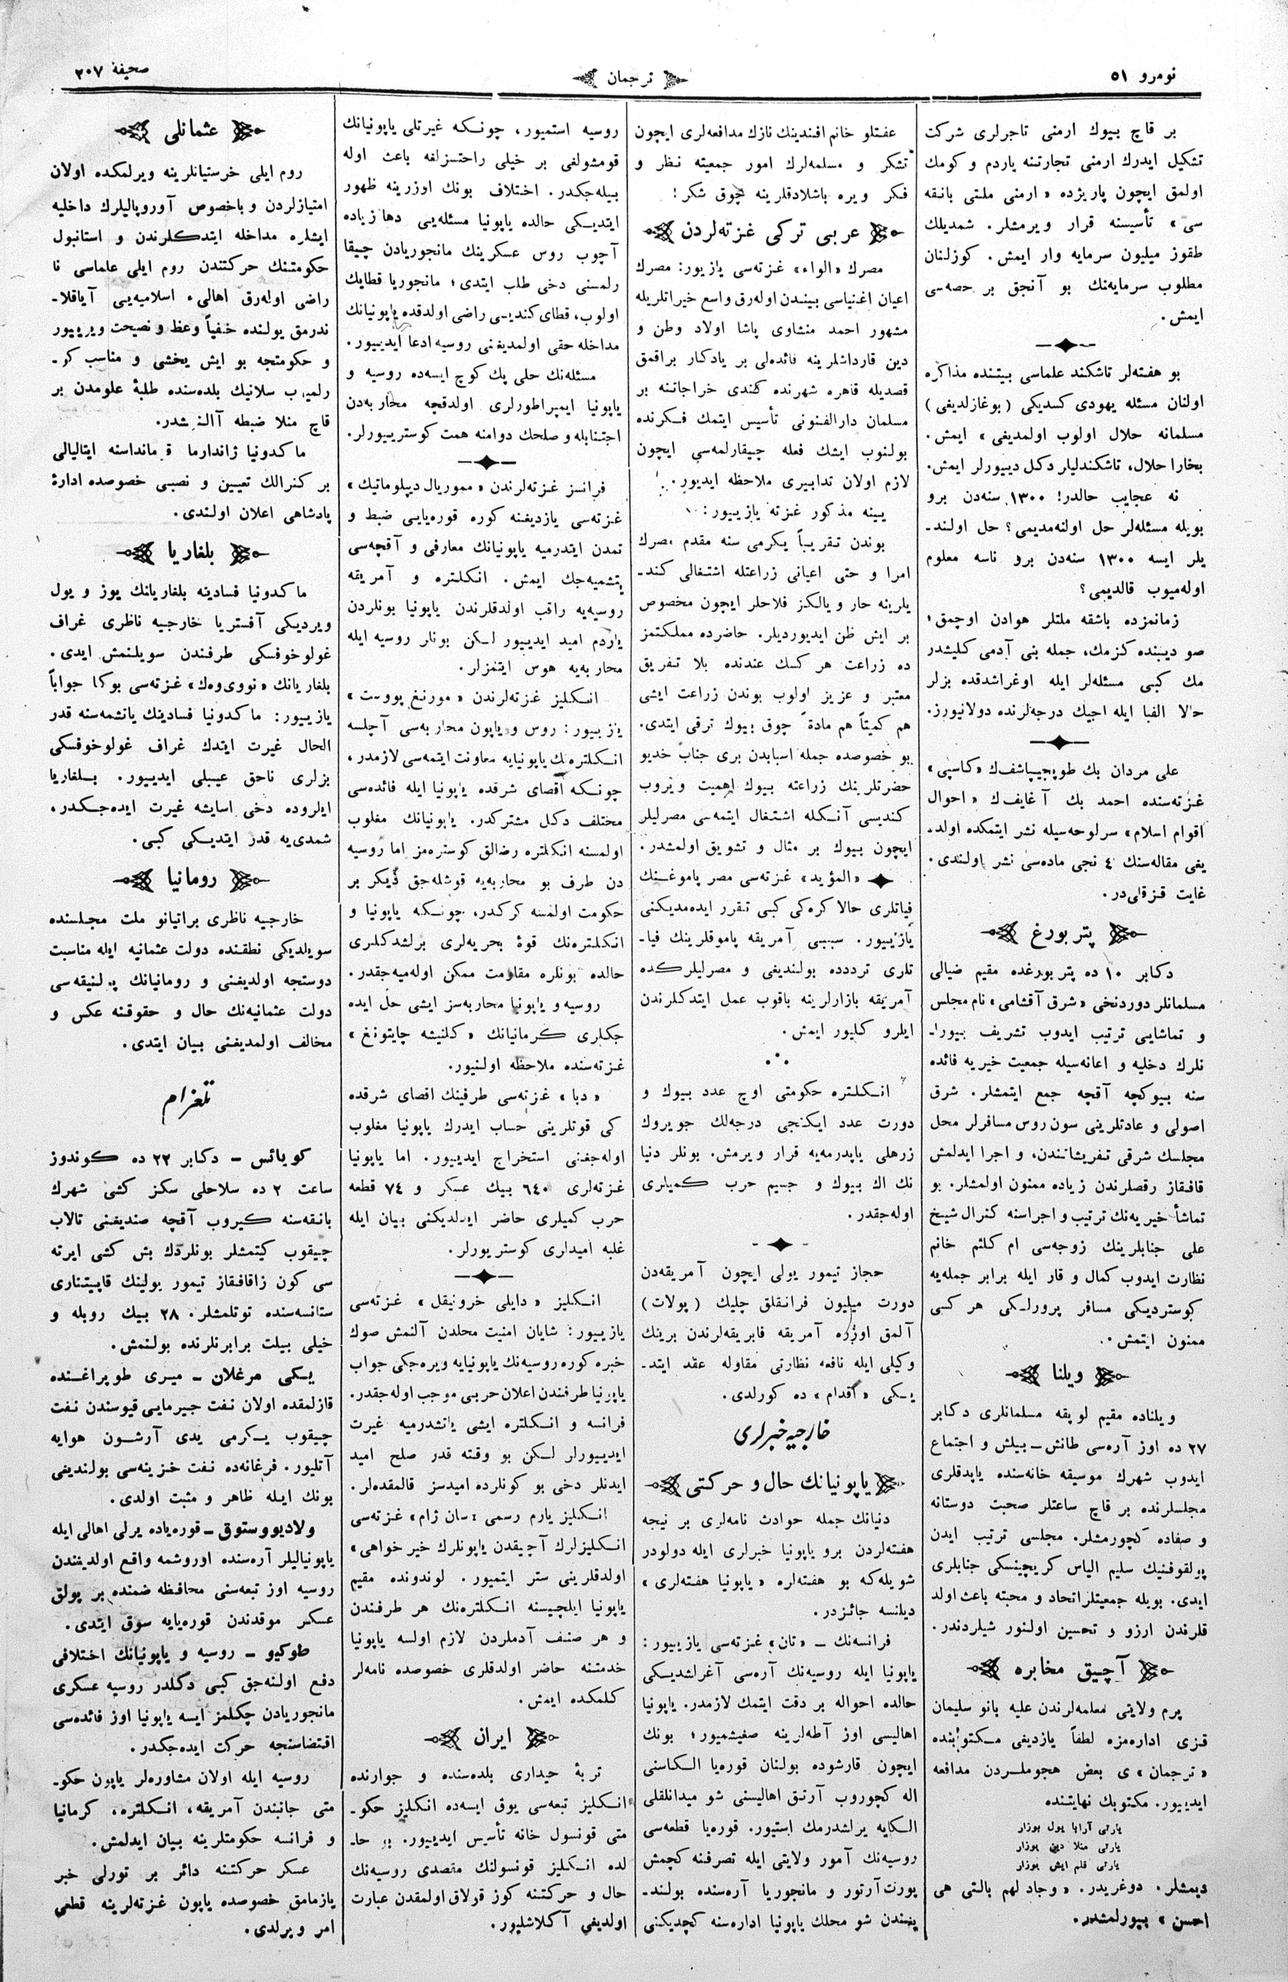 نومرو ٥١
ترجمان
صحیفه ٢٠٧
بر قاچ بیوك ارمنی تاجرلری شركت
تشكیل ایدرك ارمنی تجارتنه یاردم و كومك
اولمق ایچون پاریژده « ارمنی ملتی بانقه
سی » تأسیسنه قرار ویرمشلر. شمدیلك
طقوز میلیون سرمایه وار ایمش. كوزلنان
مطلوب سرمایه‌نك بو آنجق بر حصه‌سی
ایمش.
بو هفته‌لر تاشكند علماسی بیتنده مذاكره
اولنان مسئله یهودی كسدیكی (بوغازلدیغی)
مسلمانه حلال اولوب اولمدیغی » ایمش.
بخارا حلال، تاشكندلیلر دكل دیییورلر ایمش.
نه عجایب حالدر! ١٣٠٠ سنه‌دن برو
بویله مسئله‌لر حل اولنه‌مدیمی؟ حل اولند-
یلر ایسه ١٣٠٠ سنه‌دن برو ناسه معلوم
اوله‌میوب قالدیمی؟
زمانمزده باشقه ملتلر هوادن اوچمق؛
صو دیبنده كزمك، جمله بنی آدمی كلیشدر
مك كبی مسئله‌لر ایله اوغراشدقده بزلر
حالا الفبا ایله اجیك درجه‌لرنده دولانیورز.
علی مردان بك طوپچیباشفك «كاسپی»
غزته‌سنده احمد بك آغایفك « احوال
اقوام اسلام» سرلوحه‌سیله نشر ایتمكده اولد-
یغی مقاله‌سنك ٤ نجی ماده‌سی نشر اولندی.
غایت قزقلی‌در.
پتربورغ
دكابر ١٠ ده پتربورغده مقیم ضیالی
مسلمانلر دوردنجی «شرق آقشامی» نام مجلس
و تماشایی ترتیب ایدوب تشریف بیورا-
نلرك دخلیه و اعانه‌سیله جمعیت خیریه فائده
سنه بیوكچه آقچه جمع ایتمشلر. شرق
اصولی و عادتلرینی سون روس مسافرلر محل
مجلسك شرقی تفریشاتندن، و اجرا ایدلمش
قافقاز رقصلرندن زیاده ممنون اولمشلر. بو
تماشأ خیریه‌نك ترتیب و اجراسنه كنرال شیخ
علی جنابلرینك زوجه‌سی ام كلثم خانم
نظارت ایدوب كمال و قار ایله برابر جمله‌یه
كوستردیكی مسافر پرورلكی هر كسی
ممنون ایتمش.
ویلنا
ویلناده مقیم لویقه مسلمانلری دكابر
٢٧ ده اوز آره‌سی طانش-بیلش و اجتماع
ایدوب شهرك موسیقه خانه‌سنده یاپدقلری
مجلسلرنده بر قاچ ساعتلر صحبت دوستانه
و صفاده كچورمشلر. مجلسی ترتیب ایدن
پولقوفنیك سلیم الیاس كریچینسكی جنابلری
ایدی. بویله جمعیتلر اتحاد و محبته باعث اولد
قلرندن ارزو و تحسین اولنور شیلردندر.
آچیق مخابره
پرم ولایتی معلمه‌لرندن علیه بانو سلیمان
قزی اداره‌مزه لطفاً یازدیغی مكتوبنده
«ترجمان» ی بعض هجوملردن مدافعه
ایدییور. مكتوبك نهایتنده
یارتی آرابا یول بوزار
یارتی منلا دین بوزار
یارتی قلم ایش بوزار
دیمشلر. دوغریدر. « وجاد لهم بالتی هی
احسن » بیورلمشدر.
عفتلو خانم افندینك نازك مدافعه‌لری ایچون
تشكر و مسلمه‌لرك امور جمعیته نظر و
فكر ویره باشلادقلرینه چوق شكر!
عربی تركی غزته‌لردن
مصرك «الواء» غزته‌سی یازیور: مصرك
اعیان اغنیاسی بیننده اوله‌رق واسع خیراتلریله
مشهور احمد منشاوی پاشا اولاد وطن و
دین قارداشلرینه فائده‌لی بر یادكار براقمق
قصدیله قاهره شهرنده كندی خراجاتنه بر
مسلمان دارالفنونی تأسیس ایتمك فكرنده
بولنوب ایشك فعله چیقارلمه‌سی ایچون
لازم اولان تدابیری ملاحظه ایدیور.
یینه مذكور غزته یازییور:
بوندن تقریباً یكرمی سنه مقدم مصرك
امرا و حتی اعیانی زراعتله اشتغالی كند-
یلرینه حار و یالكز فلاحلر ایچون مخصوص
بر ایش ظن ایدیوردیلر. حاضرده مملكتمز
ده زراعت هر كسك عندنده بلا تفریق
معتبر و عزیز اولوب بوندن زراعت ایشی
هم كمیتاً هم مادةً چوق بیوك ترقی ایتدی.
بو خصوصده جمله اسبابدن بری جناب خدیو
حضرتلرینك زراعته بیوك اهمیت ویروب
كندیسی آنكله اشتغال ایتمه‌سی مصرلیلر
ایچون بیوك بر مثال و تشویق اولمشدر.
«المؤید» غزته‌سی مصر پاموغنك
فیاتلری حالا كره‌كی كبی تقرر ایده‌مدیكنی
یازییور. سببی آمریقه پاموقلرینك فیا-
تلری ترددده بولندیغی و مصرلیلركده
آمریقه بازارلرینه باقوب عمل ایتدكلرندن
ایلرو كلیور ایمش.
انكلتره حكومتی اوچ عدد بیوك و
دورت عدد ایكنجی درجه‌لك جویروك
زرهلی یاپدرمه‌یه قرار ویرمش. بونلر دنیا
نك اك بیوك و جسیم حرب كمیلری
اوله‌جقدر.
حجاز تیمور یولی ایچون آمریقه‌دن
دورت میلیون فرانقلق چلیك (پولات)
آلمق اوزره آمریقه فابریقه‌لرندن برینك
وكیلی ایله نافعه نظارتی مقاوله عقد ایتد-
یكی «اقدام» ده كورلدی.
خارجیه خبرلری
یاپونیانك حال و حركتی
دنیانك جمله حوادث نامه‌لری بر نیجه
هفته‌لردن برو یاپونیا خبرلری ایله دولودر
شویله‌كه بو هفته‌لره «یاپونیا هفته‌لری»
دینلسه جائزدر.
فرانسه‌نك - «تان» غزته‌سی یازییور:
یاپونیا ایله روسیه‌نك آره‌سی آغراشدیكی
حالده احواله بر دقت ایتمك لازمدر. یاپونیا
اهالیسی اوز آطه‌لرینه صغیشمیور؛ بونك
ایچون قارشوده بولنان قوره‌یا الكاسنی
اله كچوروب آرتق اهالیسنی شو میدانلقلی
الكایه یرلشدرمك استیور. قوره‌یا قطعه‌سی
روسیه‌نك آمور ولایتی ایله تصرفنه كچمش
پورت‌آرتور و مانجوریا آره‌سنده بولند-
یغندن شو محلك یاپونیا اداره‌سنه كچدیكنی
روسیه استمیور، چونكه غیرتلی یاپونیانك
قومشولغی بر خیلی راحتسزلغه باعث اوله
بیله‌جكدر. اختلاف بونك اوزرینه ظهور
ایتدیكی حالده یاپونیا مسئله‌یی دها زیاده
آچوب روس عسكرینك مانجوریادن چیقا
رلمسنی دخی طلب ایتدی؛ مانجوریا قطایك
اولوب، قطای كندیسی راضی اولدقده یاپونیانك
مداخله حقی اولمدیغنی روسیه ادعا ایدییور.
مسئله‌نك حلی پك كوچ ایسه‌ده روسیه و
یاپونیا ایمپراطورلری اولدقچه محاربه‌دن
اجتنابله و صلحك دوامنه همت كوسترییورلر.
فرانسز غزته‌لرندن «مموریال دیپلوماتیك»
غزته‌سی یازدیغنه كوره قوره‌یایی ضبط و
تمدن ایتدرمیه یاپونیانك معارفی و آقچه‌سی
یتشمیه‌جك ایمش. انكلتره و آمریقه
روسیه‌یه راقب اولدقلرندن یاپونیا بونلردن
یاردم امید ایدییور لكن بونلر روسیه ایله
محاربه‌یه هوس ایتمزلر.
انكلیز غزته‌لرندن «مورنغ پووست»
یازییور: روس و یاپون محاربه‌سی آچلسه
انكلتره‌نك یاپونیایه معاونت ایتمه‌سی لازمدر،
چونكه آقصای شرقده یاپونیا ایله فائده‌سی
مختلف دكل مشتركدر. یاپونیانك مغلوب
اولمسنه انكلتره رضالق كوستره‌مز اما روسیه
دن طرف بو محاربه‌یه قوشله‌جق دیكر بر
حكومت اولمسه كركدر، چونكه یاپونیا و
انكلتره‌نك قوۀ بحریه‌لری برلشدكلری
حالده بونلره مقاومت ممكن اوله‌میه‌جقدر.
روسیه و یاپونیا محاربه‌سز ایشی حل ایده
جكلری كرمانیانك «كلنیشه چایتونغ»
غزته‌سنده ملاحظه اولنیور.
«دبا» غزته‌سی طرفینك اقصای شرقده
كی قوتلرینی حساب ایدرك یاپونیا مغلوب
اوله‌جغنی استخراج ایدییور. اما یاپونیا
غزته‌لری ٦٤٠ بیك عسكر و ٧٤ قطعه
حرب كمیلری حاضر ایدلدیكنی بیان ایله
غلبه امیدلری كوسترییورلر.
انكلیز «دایلی خرونیقل» غزته‌سی
یازییور: شایان امنیت محلدن آلنمش صوك
خبره كوره روسیه‌نك یاپونیایه ویره‌جكی جواب
یاپونیا طرفندن اعلان حربی موجب اوله‌جقدر.
فرانسه و انكلتره ایشی یاتشدرمیه غیرت
ایدییورلر لكن بو وقته قدر صلح امید
ایدنلر دخی بو كونلرده امیدسز قالمقده‌لر.
انكلیز یارم رسمی «سان ژام» غزته‌سی
انكلیزلرك آچیقدن یاپونلرك خیر خواهی
اولدقلرینی ستر ایتمیور. لوندونده مقیم
یاپونیا ایلچیسنه انكلتره‌نك هر طرفندن
و هر صنف آدملردن لازم اولسه یاپونیا
خدمتنه حاضر اولدقلری خصوصده نامه‌لر
كلمكده ایمش.
ایران
تربۀ حیداری بلده‌سنده و جوارنده
انكلیز تبعه‌سی یوق ایسه‌ده انكلیز حكو-
متی قونسول خانه تأسیس ایدییور. بو حا-
لده انكلیز قونسولنك مقصدی روسیه‌نك
حال و حركتنه كوز قولاق اولمقدن عبارت
اولدیغی آكلاشلیور.
عثمانلی
روم ایلی خرستیانلرینه ویرلمكده اولان
امتیازلردن و باخصوص آوروپالیلرك داخلیه
ایشلره مداخله ایتدكلرندن و استانبول
حكومتنك حركتندن روم ایلی علماسی نا
راضی اوله‌رق اهالیء اسلامیه‌یی آیاقلا-
ندرمق یولنده خفیاً وعظ و نصیحت ویرییور
و حكومتجه بو ایش یخشی و مناسب كو-
رلمیوب سلانیك بلده‌سنده طلبۀ علومدن بر
قاچ منلا ضبطه آلنمشدر.
ماكدونیا ژاندارما قومانداسنه ایتالیالی
بر كنرالك تعیین و نصبی خصوصده ادارۀ
پادشاهی اعلان اولندی.
بلغاریا
ماكدونیا فسادینه بلغاریانك یوز و یول
ویردیكی آفستریا خارجیه ناظری غراف
غولوخوفسكی طرفندن سویلنمش ایدی.
بلغاریانك «نووی‌وه‌ك» غزته‌سی بوكا جواباً
یازییور: ماكدونیا فسادینك یاتشمه‌سنه قدر
الحال غیرت ایتدك غراف غولوخوفسكی
بزلری ناحق عیبلی ایدییور. بلغاریا
ایلروده دخی اسایشه غیرت ایده‌جكدر،
شمدی‌یه قدر ایتدیكی كبی.
رومانیا
خارجیه ناظری براتیانو ملت مجلسنده
سویلدیكی نطقنده دولت عثمانیه ایله مناسبت
دوستجه اولدیغنی و رومانیانك پولتیقه‌سی
دولت عثمانیه‌نك حال و حقوقنه عكس و
مخالف اولمدیغنی بیان ایتدی.
تلغرام
كوبائس - دكابر ٢٢ ده كوندوز
ساعت ٢ ده سلاحلی سكز كشی شهرك
بانقه‌سنه كیروب آقچه صندیغنی تالاب
چیقوب كیتمشلر بونلردن بش كشی ایرته
سی كون زاقافقاز تیمور یولینك قاپیتناری
ستانسه‌سنده توتلمشلر. ٢٨ بیك روبله و
خیلی بیلت برابرنلرنده بولنمش.
یكی مرغلان - میری طوپراغنده
قازلمقده اولان نفت جیرمایی قیوسندن نفت
چیقوب یكرمی یدی آرشون هوایه
آتلیور. فرغانه‌ده نفت خزینه‌سی بولندیغی
بونك ایله ظاهر و مثبت اولدی.
ولادیووستوق - قوره‌یاده یرلی اهالی ایله
یاپونیالیلر آره‌سنده اوروشمه واقع اولدیغندن
روسیه اوز تبعه‌سنی محافظه ضمنده بر پولق
عسكر موقدندن قوره‌یایه سوق ایتدی.
طوكیو - روسیه و یاپونیانك اختلافی
دفع اولنه‌جق كبی دكلدر روسیه عسكری
مانجوریادن چكلمز ایسه یاپونیا اوز فائده‌سی
اقتضاسنجه حركت ایده‌جكدر.
روسیه ایله اولان مشاوره‌لر یاپون حكو-
متی جانبندن آمریقه، انكلتره، كرمانیا
و فرانسه حكومتلرینه بیان ایدلمش.
عسكر حركتنه دائر بر تورلی خبر
یازمامق خصوصده یاپون غزته‌لرینه قطعی
امر ویرلدی.